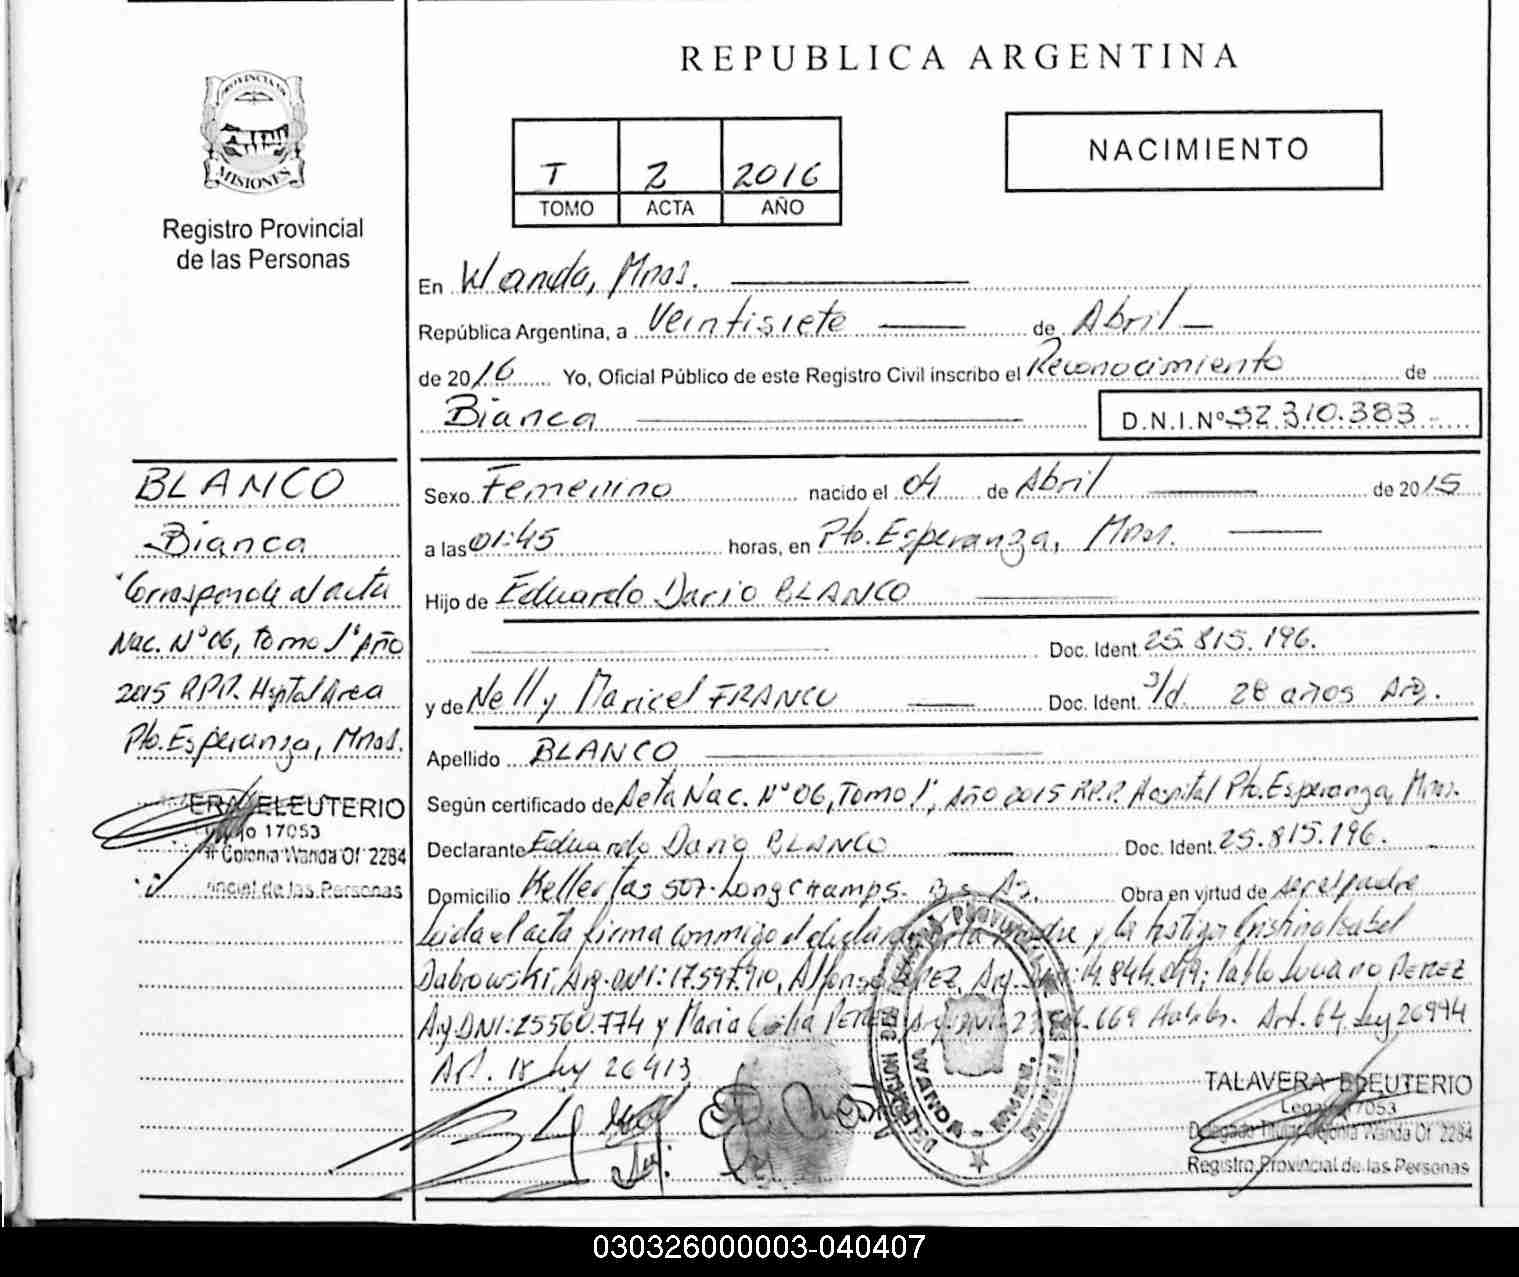 REPUBLICA ARGENTINA
PROVINCIA DE
MISIONES
Registro Provincial
de las Personas
NACIMIENTO
T 2 2016
TOMO ACTA AÑO
En Wanda, Mnes.
República Argentina, a Veintisiete de Abril
de 2016 Yo, Oficial Público de este Registro Civil inscribo el Reconocimiento de
Bianca D.N.I.Nº 52.310.383
BLANCO
Bianca
Corresponde al acta
Nac. Nº 06, tomo 1º Año
2015 R.P.P. Hspital Area
Pto. Esperanza, Mnes.
ERA ELEUTERIO
17053
Colonia Wanda Of 2284
incial de las Personas
Sexo Femenino nacido el 04 de Abril de 2015
a las 01:45 horas, en Pto. Esperanza, Mnes.
Hijo de Eduardo Dario BLANCO
Doc. Ident. 25.815.196.
y de Nelly Maricel FRANCO Doc. Ident. S/d. 28 años Arg.
Apellido BLANCO
Según certificado de Acta Nac. Nº 06, Tomo 1º, Año 2015 R.P.P. Hospital Pto. Esperanza, Mnes.
Declarante Eduardo Dario BLANCO Doc. Ident. 25.815.196.
Domicilio 507 - Longchamps - Bs As. Obra en virtud de ser el padre
Leida el acta firma conmigo el declarante la madre y la testigo Cristina Isabel
Dabrowski, Arg. DNI: 17.597.910, Alfonso PEREZ, Arg. DNI: 14.844.049; Pablo Luciano PEREZ
Arg. DNI: 25560.774 y Maria PEREZ Arg. DNI: .669 Habiles. Art. 64 Ley 26994
Art. 18 Ley 26413
DELEGACION DEL REGISTRO PROVINCIAL DE LAS PERSONAS
WANDA - MNES.
TALAVERA ELEUTERIO
Legajo 17053
Delegado Titular Colonia Wanda Of 2284
Registro Provincial de las Personas
030326000003-040407